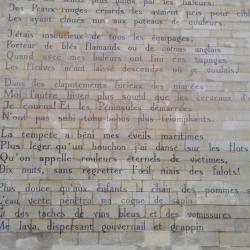 plus guidé par les haleurs:
Des Peaux-rouges criards les avaient pris pour cibles
Les ayant cloués nus aux poteaux de couleurs.
J'étais insoucieux de tous les équipages,
Porteur de blés flamands ou de cotons anglais
Quand avec mes haleurs ont fini ces tapages
Les Fleuves m'ont laissé descendre où je voulais.
Dans les clapotements furieux des marées
Moi, l'autre hiver, plus sourd que les cerveaux d'
Je courus! Et les Péninsules démarrées
N'ont pas subi tohu-bohus plus triomphants.
La tempête a béni mes éveils maritimes
Plus léger qu'un bouchon j'ai dansé sur les flots
Qu'on appelle rouleurs éternels de victimes,
Dix nuits, sans regretter l'œil niais des falots!
Plus douce qu'aux enfants la chair des pommes
L'eau verte pénétra ma coque de sapin
Et des taches de vins bleus et des vomissures
Me lava, dispersant gouvernail et grappin